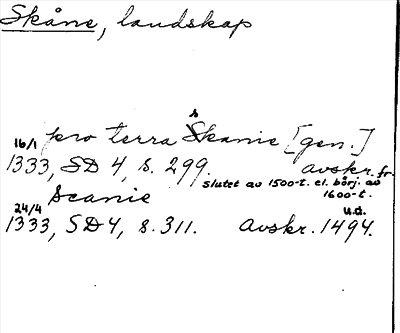 Skåne, landskap
pro terra skanie [gen.]
16/1 1333, SD 4, s. 299. avskr. fr.
slutet av 1500-t. el. börj. av
1600-t.
Scanie
24/4 1333, SD 4, s. 311. Avskr. 1494. u.d.